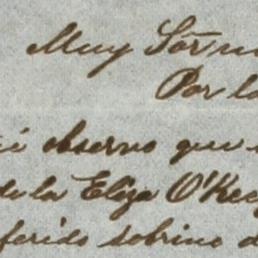 Muy Sōr m
Por lo
observo que
de la Eliza O'Kee
ferido sobrino d